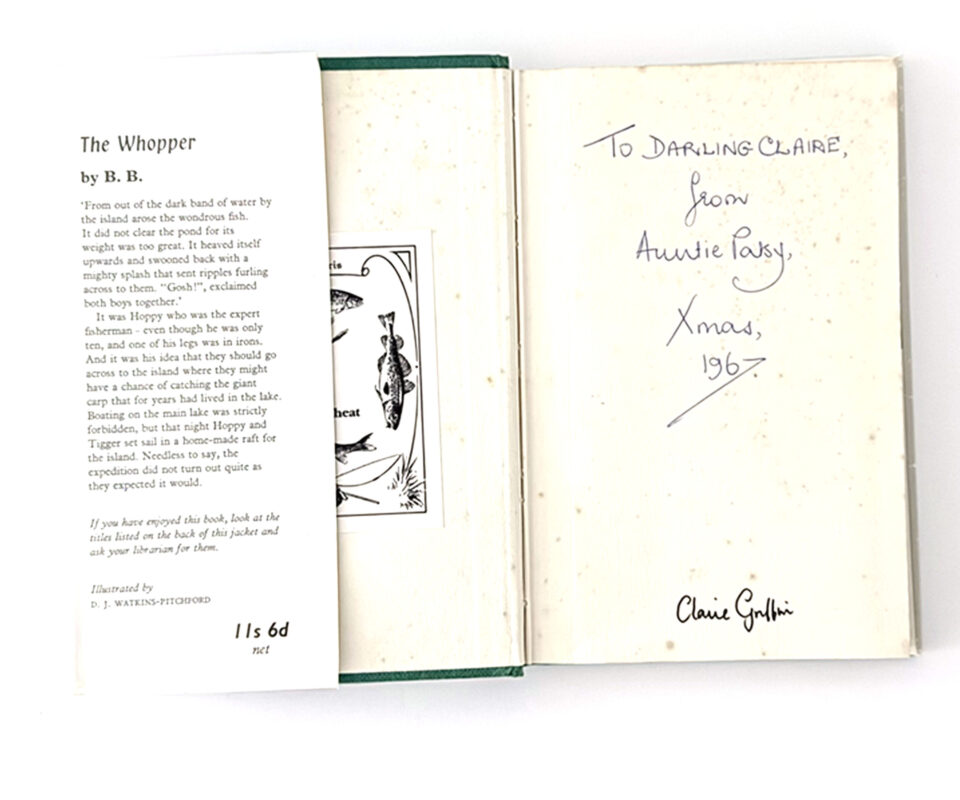 The Whopper
by B. B.
'From out of the dark band of water by
the island arose the wondrous fish.
It did not clear the pond for its
weight was too great. It heaved itself
upwards and swooned back with a
mighty splash that sent ripples furling
across to them. "Gosh!", exclaimed
both boys together.'
It was Hoppy who was the expert
fisherman - even though he was only
ten, and one of his legs was in irons.
And it was his idea that they should go
across to the island where they might
have a chance of catching the giant
carp that for years had lived in the lake.
Boating on the main lake was strictly
forbidden, but that night Hoppy and
Tigger set sail in a home-made raft for
the island. Needless to say, the
expedition did not turn out quite as
they expected it would.
If you have enjoyed this book, look at the
titles listed on the back of this jacket and
ask your librarian for them.
Illustrated by
D. J. WATKINS-PITCHFORD
11s 6d
net
ris
heat
TO DARLING CLAIRE,
from
Auntie Patsy,
Xmas,
1967.
Claire Griffin